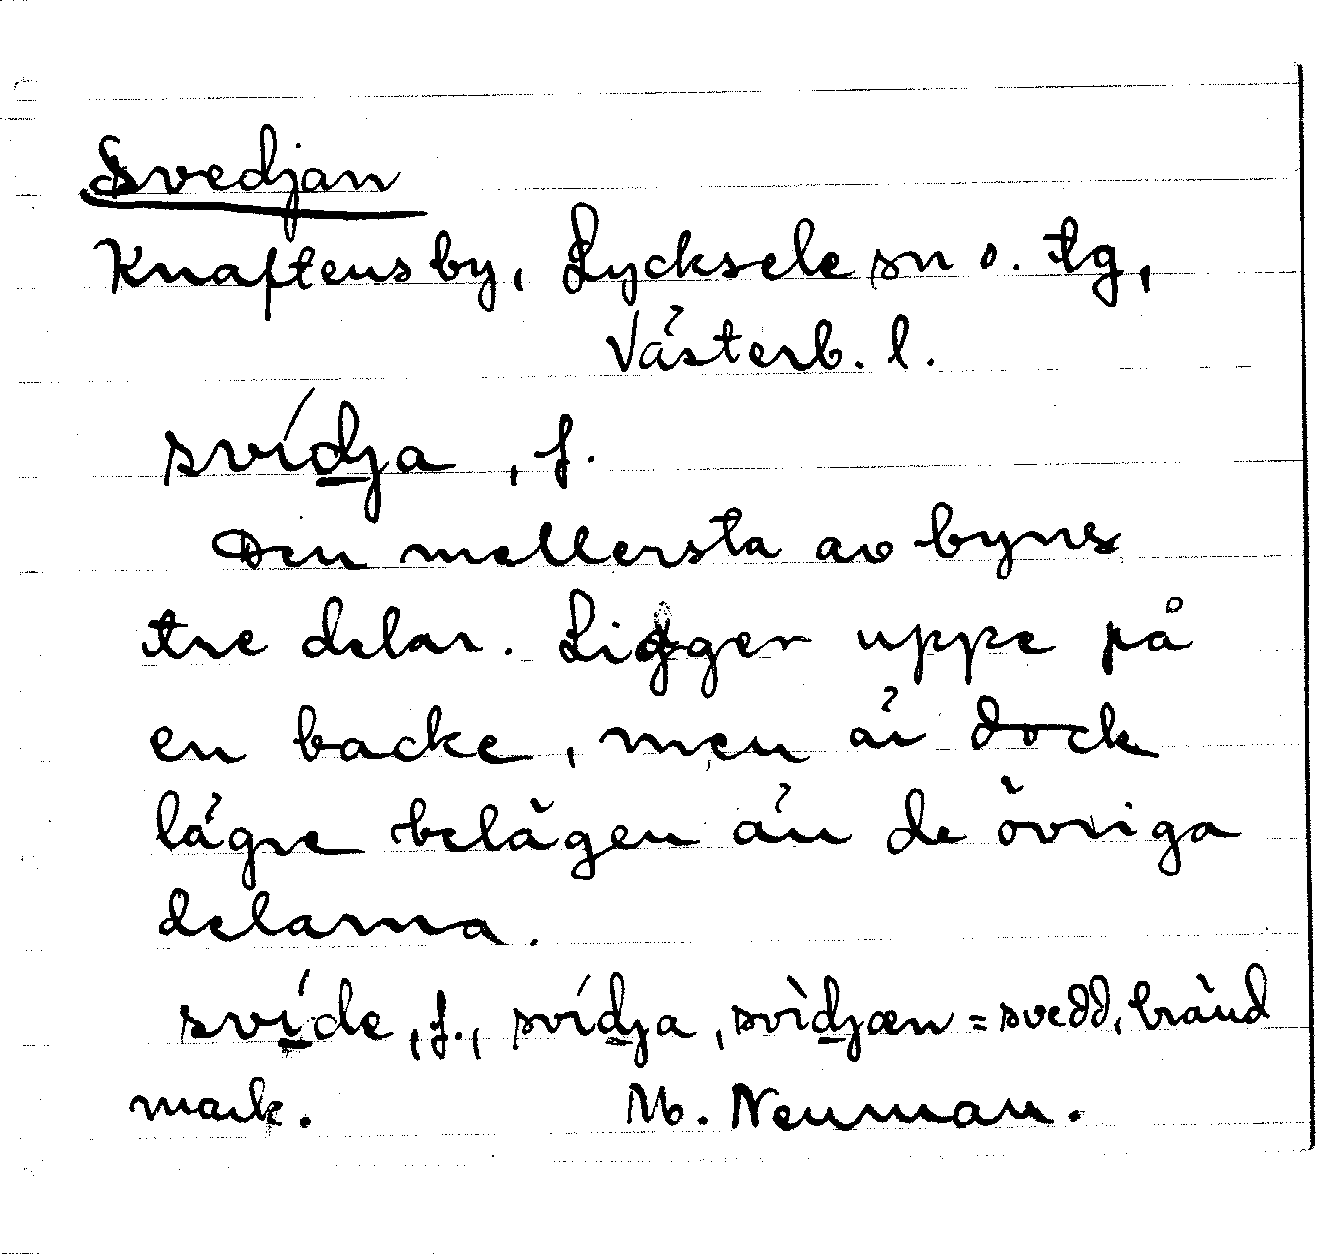 Svedjan
Knaftens by, Lycksele sn o. tg,
Västerb. l.
svídja, f.
Den mellersta av byns
tre delar. Ligger uppe på
en backe, men är dock
lägre belägen än de övriga
delarna.
svíde, f., svídja, svìdjæn = svedd, bränd
mark. M. Neuman.